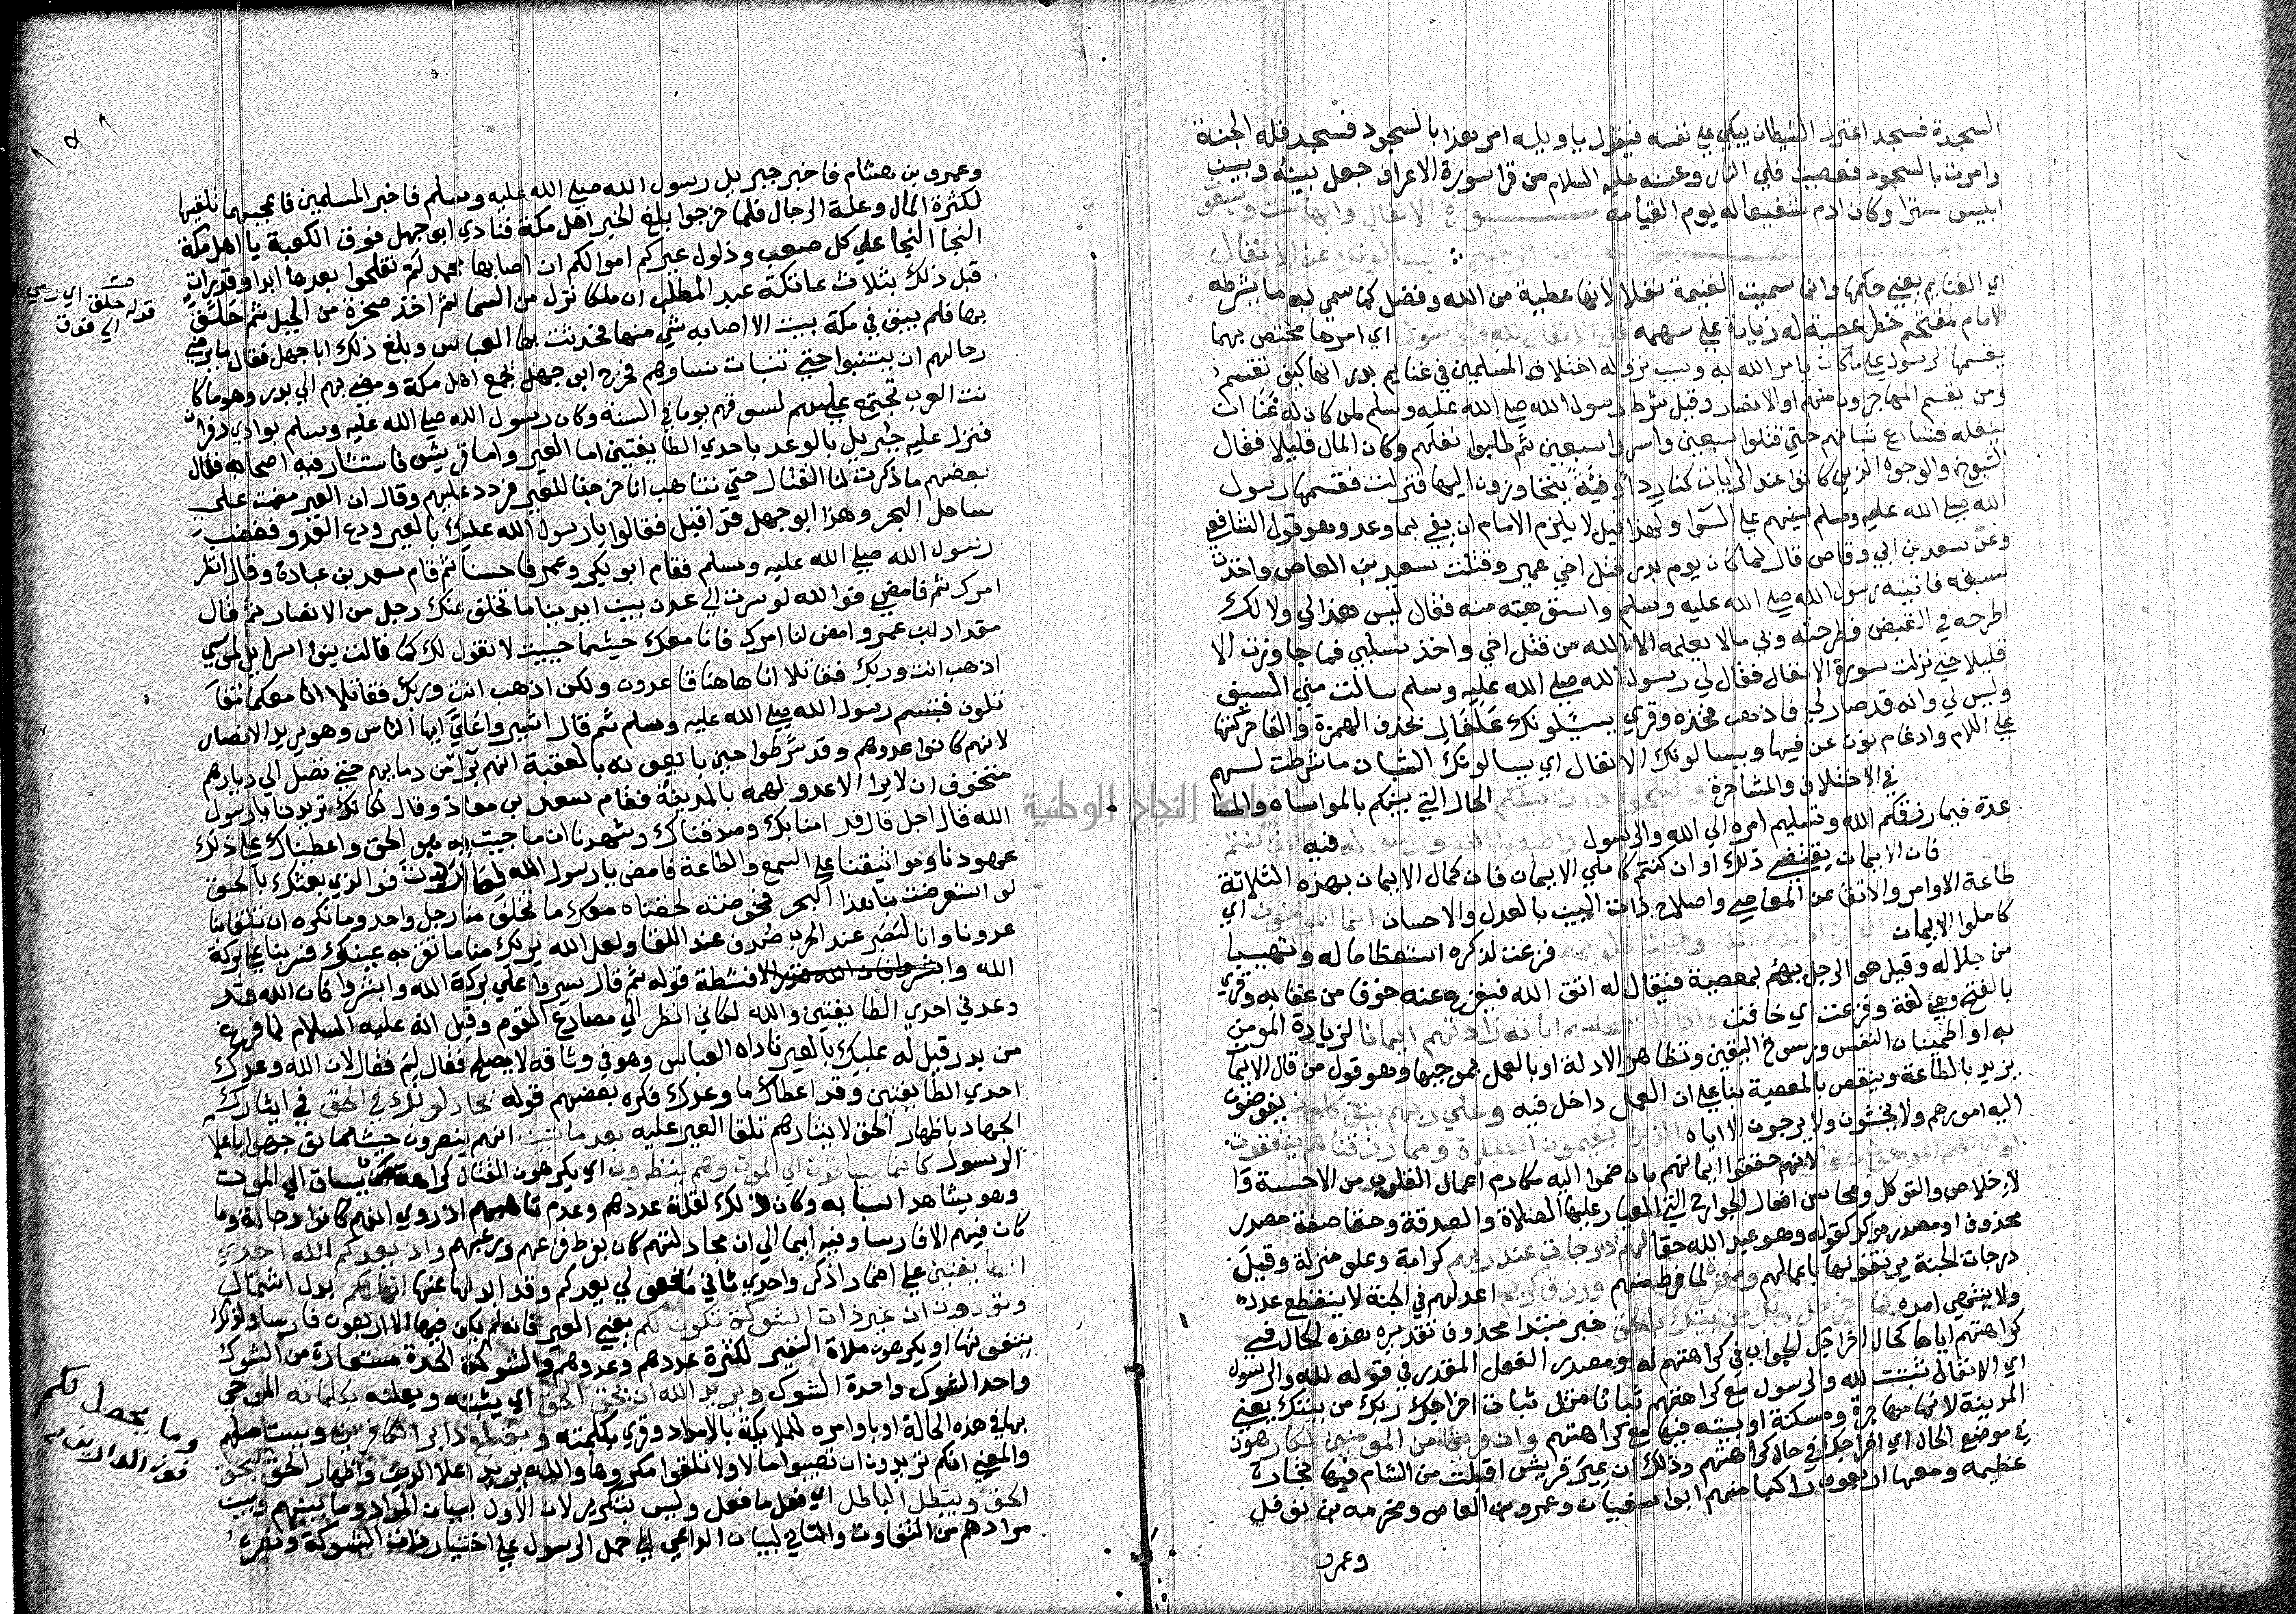 السجدة فسجد اعتزل الشيطان يبكي على نفسه فيقول يا ويله امر هذا بالسجود فسجد فله الجنة
وامرت بالسجود فعصيت فلي النار وعنه عليه السلام من قرا سورة الاعراف جعل بينه وبين
ابليس سترا وكان ادم شفيعا له يوم القيامه سورة الانفال وايها ست وسبعون
الرحيم يسالونك عن الانفال
اي الغنايم يعني حكمها وانما سميت الغنيمة نفلا لانها عطية من الله وفضل كما سمي به ما يشرطه
الامام لمقتحم خطر عطية له زيادة على سهمه قل الانفال لله والرسول اي امرها مختص بهما
يقسمها الرسول على ما كان يامر الله به وسبب نزوله اختلاف المسلمين في غنايم بدر انها كيف تقسم
ومن يقسم المهاجرون منهم او الانصار وقيل شرط رسول الله صلى الله عليه وسلم لمن كان له غناء ان
ينفله فتسارع شبانهم حتي قتلوا سبعين واسروا سبعين ثم طلبوا نفلهم وكان المال قليلا فقال
الشيوخ والوجوه الذين كانوا عند الرايات كنا ردا لكم وفئة ينحازون اليها فنزلت فقسمها رسول
الله صلى الله عليه وسلم بينهم على السوا ولهذا قيل لا يلزم الامام ان يفي بما وعد وهو قول الشافعي
وعن سعد بن ابي وقاص قال لما كان يوم بدر قتل اخي عمير وقتلت سعيد بن العاص واخذت
سيفه فاتيته رسول الله صلى الله عليه وسلم واستوهبته منه فقال ليس هذا لي ولا لك
اطرحه في القبض فطرحته وبي مالا يعلمه الا الله من قتل اخي واخذ سلبي فما جاوزت الا
قليلا حتي نزلت سورة الانفال فقال لي رسول الله صلى الله عليه وسلم سالت مني السيف
وليس لي وانه قد صار لي فاذهب فخذه وقري يسئلونك علنفال بحذف الهمزة والقا حركتها
على اللام وادغام نون عن فيها ويسالونك الانفال اي يسالونك الشبان ما شرطت لهم
في الاختلاف والمشاجرة واصلحوا ذات بينكم الحال التي بينكم بالمواساه والمسا
عدة فيما رزقكم الله وتسليم امره الي الله والرسول واطيعوا الله ورسوله فيه ان كنتم
فان الايمان يقتضي ذلك او ان كنتم كاملي الايمان فان كمال الايمان بهذه الثلاثة
طاعة الاوامر والاتقا عن المعاصي واصلاح ذات البين بالعدل والاحسان انما المومنون اي
كاملوا الايمان الذين اذا ذكر الله وجلت قلوبهم فزعت لذكره استعظاما له وتهيبا
من جلاله وقيل هو الرجل يهم بمعصية فيقال له اتق الله فينزع عنه خوفا من عقابه وقري
بالفتح وهي لغة وفزعت اي خافت واذا تليت عليهم اياته زادتهم ايمانا لزيادة المومن
به او اطمينان النفس ورسوخ اليقين وتظاهر الادلة او بالعمل بموجبها وهو قول من قال الايما
يزيد بالطاعة وينقص بالمعصية بنا على ان العمل داخل فيه وعلى ربهم يتوكلون يفوضون
اليه امورهم ولا يخشون ولا يرجون الا اياه الذين يقيمون الصلاة ومما رزقناهم ينفقون
اوليك هم المومنون حقا لانهم حققوا ايمانهم بان ضموا اليه مكارم اعمال القلوب من الاخسية وا
لاخلاص والتوكل ومحاسن افعال الجوارح التي المعيار عليها الصلاة والصدقة وحقا صفة مصدر
محذوف او مصدر موكد كقوله وهو عبد الله حقا لهم درجات عند ربهم كرامة وعلو منزلة وقيل
درجات الجنة يرتقونها باعمالهم ومغفرة لما فرط منهم ورزق كريم اعد لهم في الجنة لا ينقطع عدده
ولا ينتهي امده كما اخرجك ربك من بيتك بالحق خبر مبتدا محذوف تقديره هذه الحال في
كراهتهم اياها كحال اخراجك للحرب في كراهتهم له او مصدر الفعل المقدر في قوله لله والرسول
اي الانفال ثبتت لله والرسول مع كراهتهم ثباتا مثل ثبات اخراجك ربك من بيتك يعني
المدينة لانها مهاجره ومسكنه او بيته فيها مع كراهتهم وان فريقا من المومنين لكارهون
في موضع الحال اي اخرجك في حال كراهتهم وذلك ان عير قريش اقبلت من الشام فيها تجارة
عظيمه ومعها اربعون راكبا منهم ابوا سفيان وعمرو بن العاص ومخرمه بن نوفل
وعمرو
وعمرو بن هشام فاخبر جبريل رسول الله صلى الله عليه وسلم فاخبر المسلمين فاعجبهم تلقيها
لكثرة المال وقلة الرجال فلما خرجوا بلغ الخبر اهل مكة فنادي ابو جهل فوق الكعبة يا اهل مكة
النجا النجا علي كل صعب وذلول عيركم اموالكم ان اصابها محمد لن تفلحوا بعدها ابدا وقد رات
قبل ذلك بثلاث عاتكة عبد المطلب ان ملكا نزل من السما ثم اخذ صخرة من الجبل ثم حلق
بها فلم يبق في مكة بيت الا اصابه شي منها فحدثت بها العباس وبلغ ذلك ابا جهل فقال ما يرضي
رجالهم ان يتنبوا حتي تتنبات نساوهم فخرج ابو جهل بجمع اهل مكة ومضي بهم الي بدر وهو ما كا
نت العرب تجتمع عليه لسوقهم يوما في السنة وكان رسول الله صلى الله عليه وسلم بوادي ذفران
فنزل عليه جبريل بالوعد باحدي الطايفتين اما العير واما قريش فاستشار فيه اصحابه فقال
بعضهم ما ذكرت لنا القتال حتي نتاهب انا خرجنا للعير فردد عليهم وقال ان العير مضت على
ساحل البحر وهذا ابو جهل قد اقبل فقالوا يا رسول الله عليك بالعير ودع العدو فغضب
رسول الله صلى الله عليه وسلم فقام ابو بكر وعمر فاحسنا ثم قام سعد بن عبادة وقال انظر
امرك ثم فامضي فوالله لو سرت الي عدن ابين ما تخلف عنك رجل من الانصار ثم قال
مقداد بن عمرو امض لنا امرك فانا معك حيثما حببت لا نقول لك كما قالت بنوا اسرايل لموسي
اذهب انت وربك فقاتلا انا هاهنا قاعدون ولكن اذهب انت وربك فقاتلا انا معكما مقا
تلون فتبسم رسول الله صلى الله عليه وسلم ثم قال اشيروا علي ايها الناس وهو يريد الانصار
لانهم كانوا عدوهم وقد شرطوا حين بايعوه بالعقبة انهم براء من دمايهم حتي نصل الي ديارهم
فتخوف ان لا يروا الا عدو دهمه بالمدينة فقام سعد بن معاذ وقال لكانك تريدنا يا رسول
الله قال اجل قال قد امنا بك وصدقناك وشهدنا ان ما جيت به هو الحق واعطيناك على ذلك
عهودنا ومواثيقنا على السمع والطاعة فامض يا رسول الله لما اردت فوالذي بعثك بالحق
لو استعرضت بنا هذا البحر فخوضته لخضناه معك ما تخلف منا رجل واحد وما نكره ان تلقا بنا
عدونا وانا لصبر عند الحرب صدق عند اللقا ولعل الله يريك منا ما تقر به عينك فسر بنا على بركة
الله فنشطه قوله ثم قال سيروا علي بركة الله وابشروا فان الله قد
وعدني احدي الطايفتين والله لكاني انظر الي مصارع القوم وقيل انه عليه السلام لما فرغ
من بدر قيل له عليك بالعير فناداه العباس وهو في وثاقه لا يصلح فقال لم فقال لان الله وعدك
احدي الطايفتين وقد اعطاك ما وعدك فكره بعضهم قوله يجادلونك في الحق في ايثارك
الجهاد باظهار الحق لايثارهم تلقا العير عليه بعد ما تبين انهم ينصرون حيثما توجهوا باعلا
الرسول كانما يساقون الي الموت وهم ينظرون اي يكرهون القتال كراهة من يساق الي الموت
وهو يشاهد اسبابه وكان ذلك لقلة عددهم وعدم تاهبهم اذ روي انهم كانوا رجالة وما
كان فيهم الا فارسا وفيه ايما الي ان مجادلتهم كان لفرط فزعهم ورعبهم واذ يعدكم الله احدي
الطايفتين على اضمار اذكر واحدي ثاني مفعولي يعدكم وقد ابدلها عنها انها لكم بدل اشتمال
وتودون ان غير ذات الشوكة تكون لكم يعني العير فانه لم يكن فيها الا اربعون فارسا ولذلك
يتمنونها او يكرهون ملاقاة النفير لكثرة عددهم وعدوهم والشوكة الحدة مستعارة من الشوك
واحد الشوك واحدة الشوك ويريد الله ان يحق الحق اي يثبته ويعليه بكلماته الموحي
بها في هذه الحالة او باوامره للملايكة بالامداد وقري بكلمته ويقطع دابر الكافرين ويستاصلهم
والمعني انكم تريدون ان تصيبوا مالا ولا تلقوا مكروها والله يريد اعلا الدين واظهار الحق ليحق
الحق ويبطل الباطل اي فعل ما فعل وليس بتكرير لان الاول لبيان المراد وما بينهم وبين
مرادهم من التفاوت والثاني لبيان الداعي الي حمل الرسول على اختيار ذات الشوكة ونصره
قوله حلق اي رمي
الي فوق
وما يحصل لكم
فوز الدارين
جامعة النجاح الوطنية